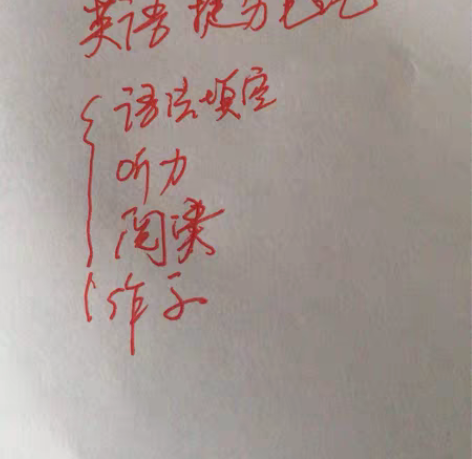 英语提分笔记
语法填空
听力
阅读
作文